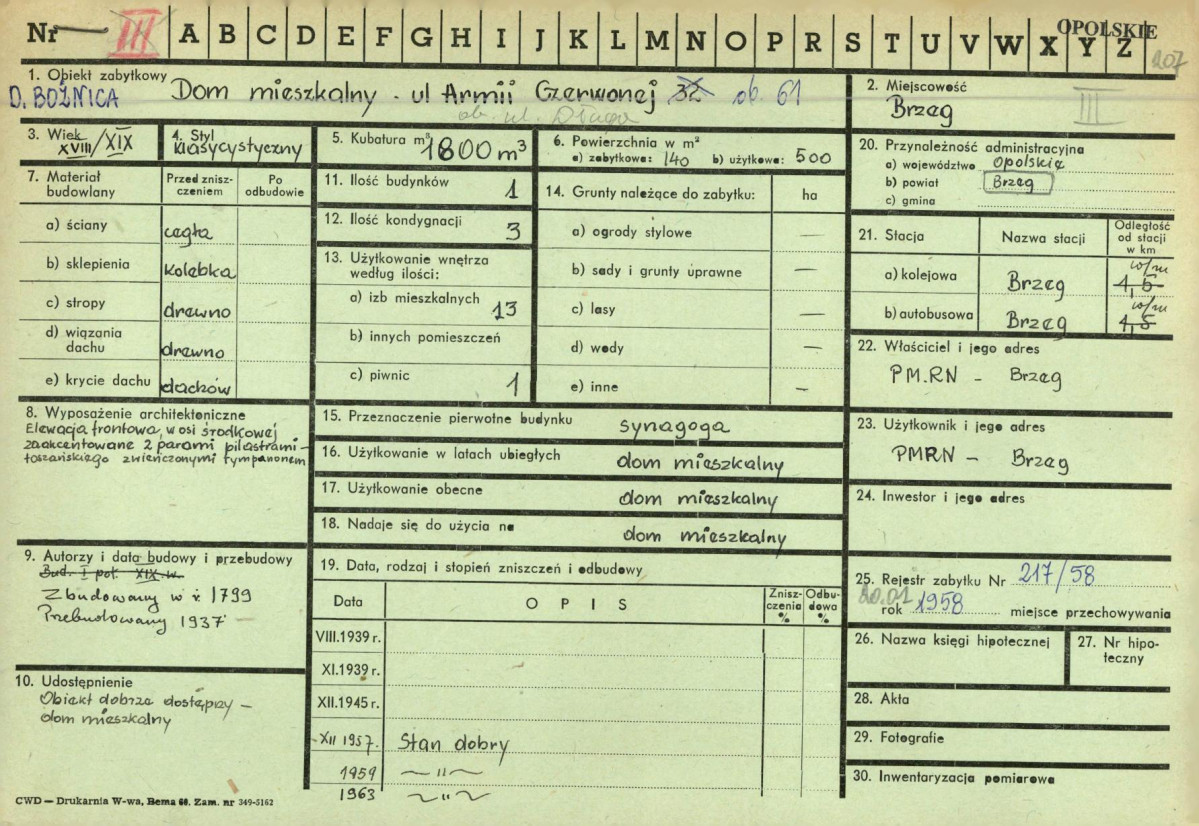 Nr III A B C D E F G H I J K L M N O P R S T U V W X Y Z
OPOLSKIE
207
1. Obiekt zabytkowy
D. BOŻNICA Dom mieszkalny - ul Armii Czerwonej 32 ob. 61
ob. ul. Długa
2. Miejscowość
Brzeg III
3. Wiek
XVIII/XIX
4. Styl
klasycystyczny
5. Kubatura m³
1800 m³
6. Powierzchnia w m²
a) zabytkowa: 140 b) użytkowa: 500
7. Materiał budowlany
Przed zniszczeniem
Po odbudowie
a) ściany cegła
b) sklepienia kolebka
c) stropy drewno
d) wiązania dachu drewno
e) krycie dachu dachów
8. Wyposażenie architektoniczne
Elewacja frontowa, w osi środkowej
zaakcentowane 2 parami pilastrami
toszańskiego zwieńczonymi tympanonem
9. Autorzy i data budowy i przebudowy
Bud. I poł. XIX w.
Zbudowany w r. 1799
Przebudowany 1937
10. Udostępnienie
Obiekt dobrze dostępny -
dom mieszkalny
11. Ilość budynków 1
12. Ilość kondygnacji 3
13. Użytkowanie wnętrza
według ilości:
a) izb mieszkalnych 13
b) innych pomieszczeń
c) piwnic 1
14. Grunty należące do zabytku: ha
a) ogrody stylowe —
b) sady i grunty uprawne —
c) lasy —
d) wody —
e) inne —
15. Przeznaczenie pierwotne budynku synagoga
16. Użytkowanie w latach ubiegłych dom mieszkalny
17. Użytkowanie obecne dom mieszkalny
18. Nadaje się do użycia na dom mieszkalny
19. Data, rodzaj i stopień zniszczeń i odbudowy
Data OPIS Zniszczenia % Odbudowa %
VIII.1939 r.
XI.1939 r.
XII.1945 r.
XII 1957. Stan dobry
1959 — " —
1963 — " —
20. Przynależność administracyjna
a) województwo Opolskie
b) powiat Brzeg
c) gmina
21. Stacja Nazwa stacji Odległość od stacji w km
a) kolejowa Brzeg 1,5 w/m
b) autobusowa Brzeg 1,5 w/m
22. Właściciel i jego adres
PM.RN - Brzeg
23. Użytkownik i jego adres
PMRN - Brzeg
24. Inwestor i jego adres
25. Rejestr zabytku Nr 217/58
20.01
rok 1958 miejsce przechowywania
26. Nazwa księgi hipotecznej
27. Nr hipoteczny
28. Akta
29. Fotografie
30. Inwentaryzacja pomiarowa
CWD — Drukarnia W-wa, Bema 60. Zam. nr 349-5162